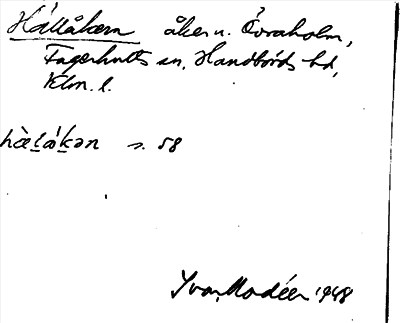 Hällåkern åker u. Övraholm,
Fagerhults sn, Handbörds hd,
Klm. l.
s. 58
Ivar Modéer 1948